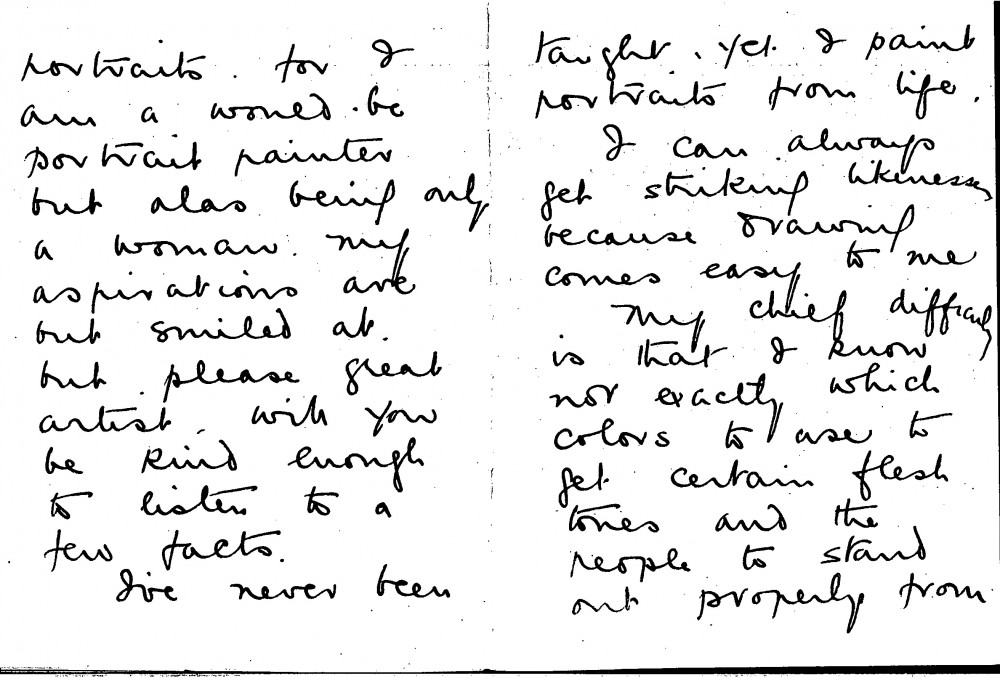 portraits. for I
am a would.be
portrait painter
but alas being only
a woman. my
aspirations are
but smiled at.
but please great
artist. will you
be kind enough
to listen to a
few facts.
I've never been
taught. yet I paint
portraits from life.
I can always
get striking likenesses
because drawing
comes easy to me
my chief difficulty
is that I know
not exactly which
colors to use to
get certain flesh
tones and the
people to stand
out properly from